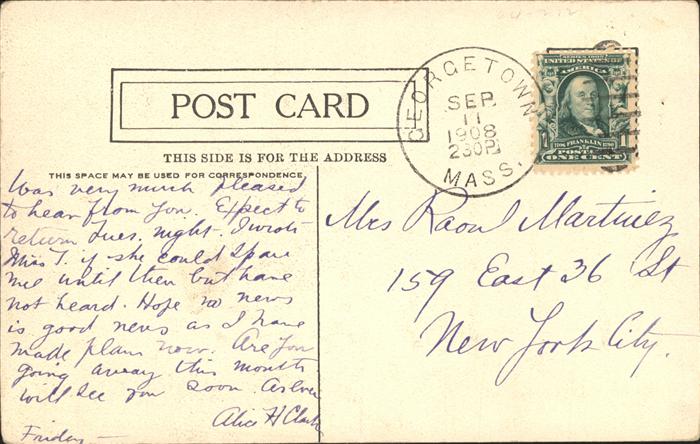 POST CARD
THIS SIDE IS FOR THE ADDRESS
THIS SPACE MAY BE USED FOR CORRESPONDENCE.
GEORGETOWN
SEP
11
1908
2 30 P
MASS.
SERIES 1902
UNITED STATES OF
AMERICA
1706 FRANKLIN 1790
POSTAGE
1 ONE CENT 1
Was very much pleased
to hear from you. Expect to
return Tues. night. I wrote
Miss T. if she could spare
me until then but have
not heard. Hope no news
is good news as I have
made plans now. Are you
going away this month
will see you soon. As Ever
Alice H Clark
Friday
Mrs Raoul Martinez
159 East 36 St
New York City.